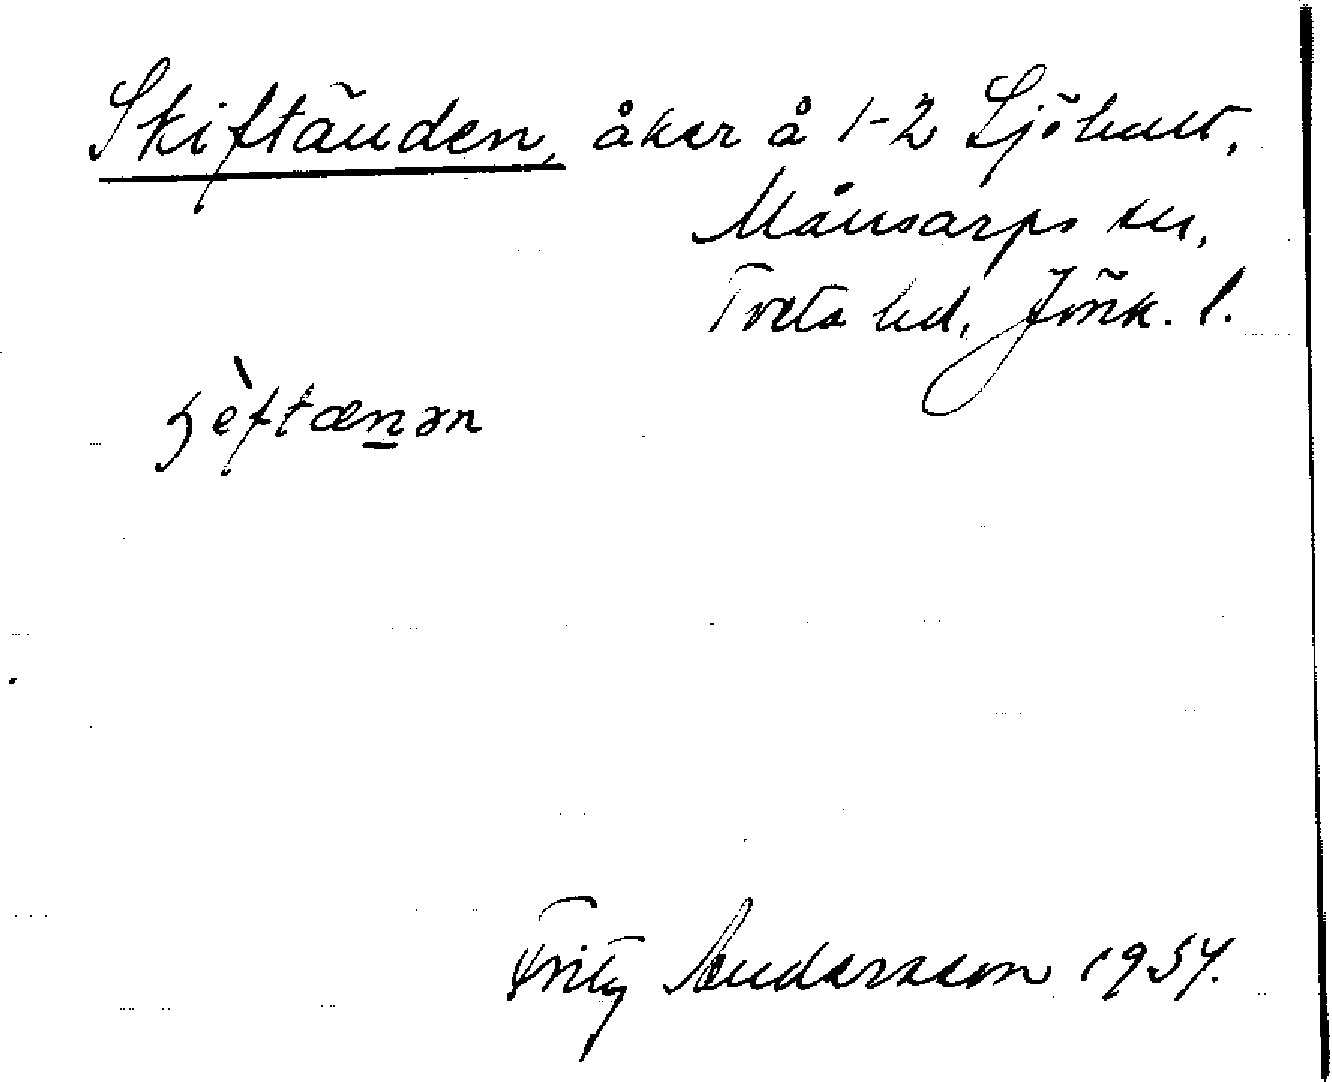 Skiftänden, åker å 1-2 Sjöhult,
Månsarps sn,
Tveta hd, Jönk. l.
ʒèftænən
Fritz Andersson 1954.